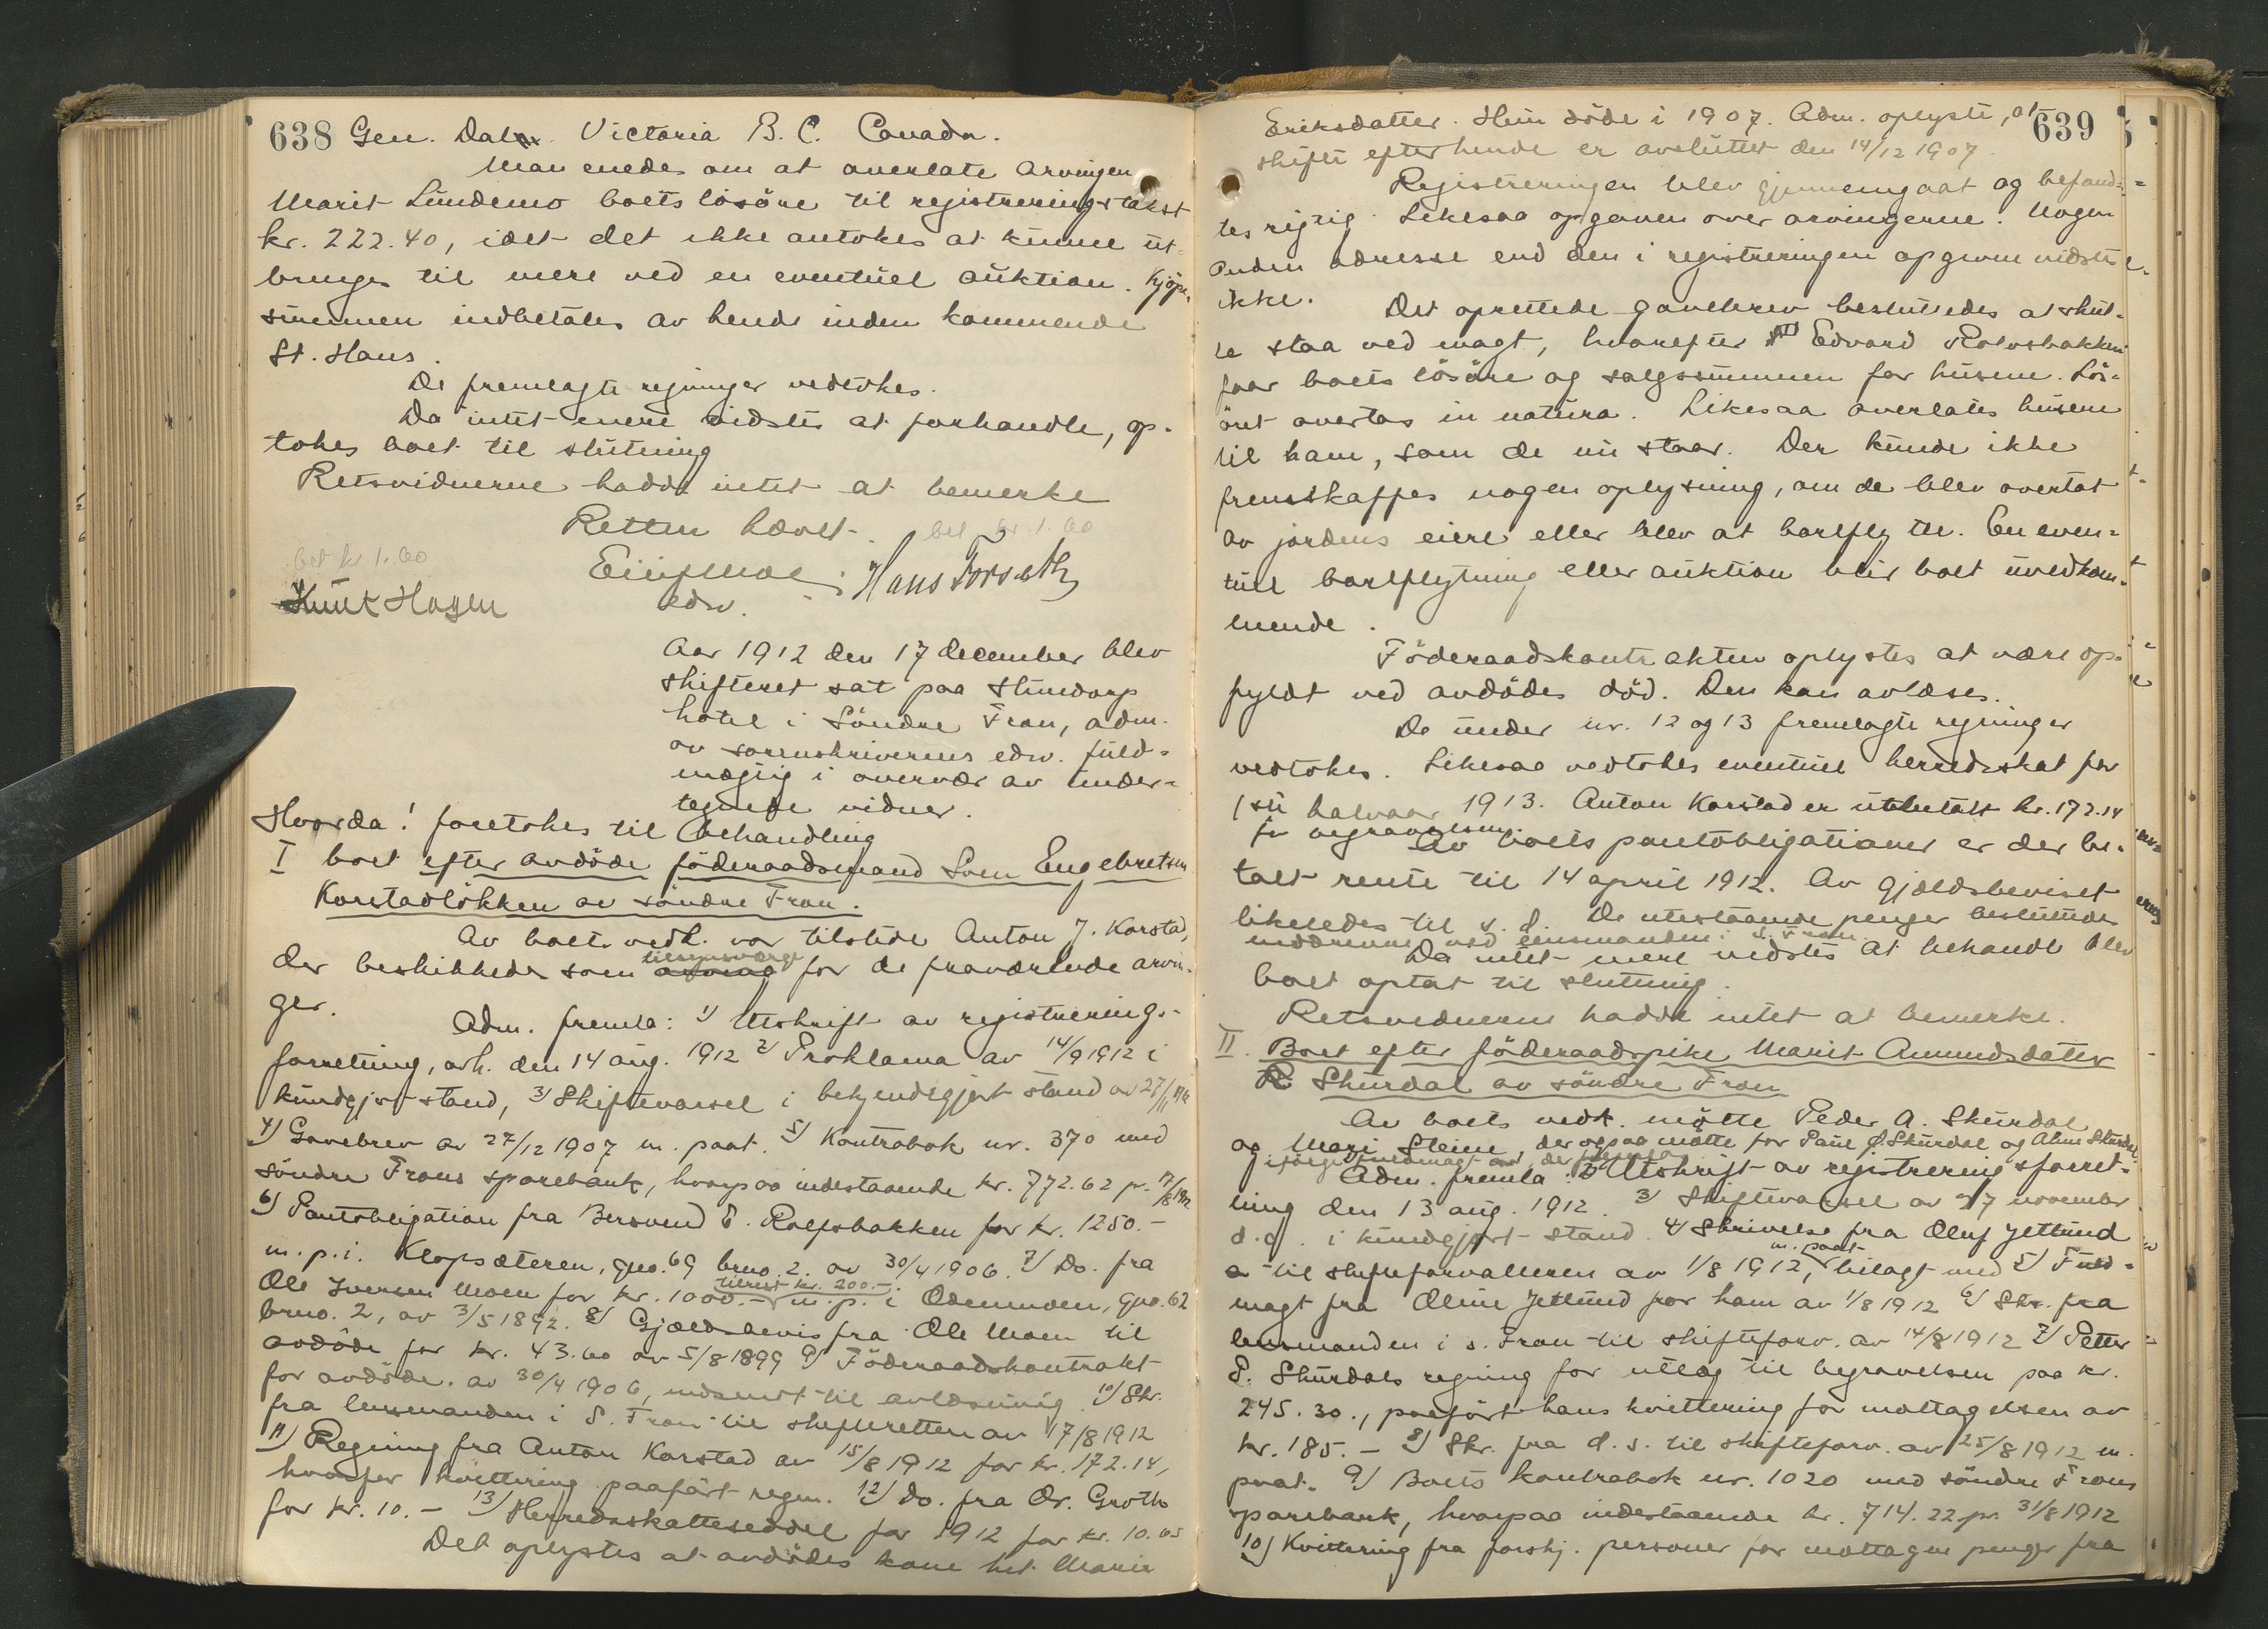 638 Gen. Dal. Victoria B. C. Canada.
Man enedes om at overlate arvingen
Marit Lundemo boets lösöre til registreringstakst
kr. 222.40, idet det ikke antokes at kunne ut-
bringes til mere ved en eventuel auktion. Kjöpe-
summen indbetales av hende inden kommende
St. Hans.
De fremlagte regninger vedtokes.
Da intet mere vidstes at forhandle, op-
tokes boet til slutning
Retsvidnerne hadde intet at bemerke
Retten hævet.
bet kr. 1.60
bet kr. 1.60
Hans Forseth
Knut Hagen
edsv.
Aar 1912 den 17 december blev
skifteret sat paa Hundorp
hotel i Söndre Fron, adm.
av sorenskriverens edsv. fuld-
mægtig i overvær av under-
tegnede vidner.
Hvorda! foretokes til behandling
I boet efter avdöde föderaadsmand Sven Engebretsen
Korstadlökken av söndre Fron.
Av boets vedk. var tilstede Anton J. Korstad,
tilsynsværge
der beskikkedes som for de fraværende arvin-
ger.
Adm. fremla: 1) Utskrift av registrerings-
forretning, avh. den 14 aug. 1912 2) Proklama av 14/9 1912 i
kundgjort stand, 3) Skiftevarsel i bekjendtgjort stand av 27/11 1912
4) Gavebrev av 27/12 1907 m. paat. 5) Kontrabok nr. 370 med
söndre Frons sparebank, hvorpaa indestaaende kr. 772.62 pr. 17/8 1912
6) Pantobligation fra Bersvend E. Rolfsbakken for kr. 1250.-
m. p. i. Klopsæteren, gno. 69 brno. 2. av 30/4 1906. 7) Do. fra
tilrest kr. 200.-
Ole Iversen Moen for kr. 1000.- m. p. i Odenmoen, gno. 62
brno. 2, av 3/5 1892. 8) Gjældsbevis fra Ole Moen til
avdöde for kr. 43.60 av 5/8 1899 9) Föderaadskontrakt
for avdöde. av 30/4 1906, indsendt til avlæsning. 10) Skr.
fra lensmanden i S. Fron til skifteretten av 17/8 1912
11) Regning fra Anton Korstad av 15/8 1912 for kr. 172.14,
hvorfor kvittering paafört regn. 12) Do. fra Dr. Groth
for kr. 10.- 13) Herredsskatteseddel for 1912 for kr. 10.05
Det oplystes at avdödes kone het Marie
639
Eriksdatter. Hun döde i 1907. Adm. oplyste, at
skifte efter hende er avsluttet den 14/12 1907.
Registreringen blev gjennemgaat og befand-
tes rigtig. Likesaa opgaven over arvingerne. Nogen
anden adresse end den i registreringen opgivne vidstes
ikke.
Det oprettede gavebrev besluttedes at skul-
le staa ved magt, hvorefter Edvard Rolvsbakken
faar boets lösöre og salgssummen for husene. Lös-
öret overtas in natura. Likesaa overlates husene
til ham, som de nu staar. Der kunde ikke
fremskaffes nogen oplysning, om de blev overtat
av jordens eiere eller blev at bortflytte. En even-
tuel bortflytning eller auktion blir boet uvedkom-
mende.
Föderaadskontrakten oplystes at være op-
fyldt ved avdödes död. Den kan avlæses.
De under nr. 12 og 13 fremlagte regninger
vedtokes. Likesaa vedtokes eventuel herredsskat for
1ste halvaar 1913. Anton Korstad er utbetalt kr. 172.14
for begravelsen
Av boets pantobligationer er der be-
talt rente til 14 april 1912. Av gjældsbeviset
likeledes til s. d. De utestaaende penger besluttedes
inddrevne ved lensmanden i S. Fron.
Da intet mere vidstes at behandle blev
boet optat til slutning.
Retsvidnerne hadde intet at bemerke.
II. Boet efter föderaadspike Marit Amundsdatter
Skurdal av söndre Fron
Av boets vedk. mötte Peder A. Skurdal
og Mari Steine der ogsaa mötte for Paul Ø. Skurdal og Skurdal
ifölge fuldmagt
Adm. fremla: 2) Utskrift av registreringsforret-
ning den 13 aug. 1912. 3) Skiftevarsel av 27 november
d. a. i kundgjort stand. 4) Skrivelse fra Oluf Jetlund
m. paat
til skifteforvalteren av 1/8 1912, bilagt med 5) Fuld-
magt fra Oline Jetlund for ham av 1/8 1912 6) Skr. fra
lensmanden i s. Fron til skifteforv. av 14/8 1912 7) Petter
P. Skurdals regning for utlæg til begravelsen paa kr.
245.30., paafört hans kvittering for mottagelsen av
kr. 185.- 8) Skr. fra d. s. til skifteforv. av 25/8 1912 m.
paat. 9) Boets kontrabok nr. 1020 med söndre Frons
sparebank, hvorpaa indestaaende kr. 714.22 pr. 31/8 1912
10) Kvittering fra forskj. personer for mottagne penger fra